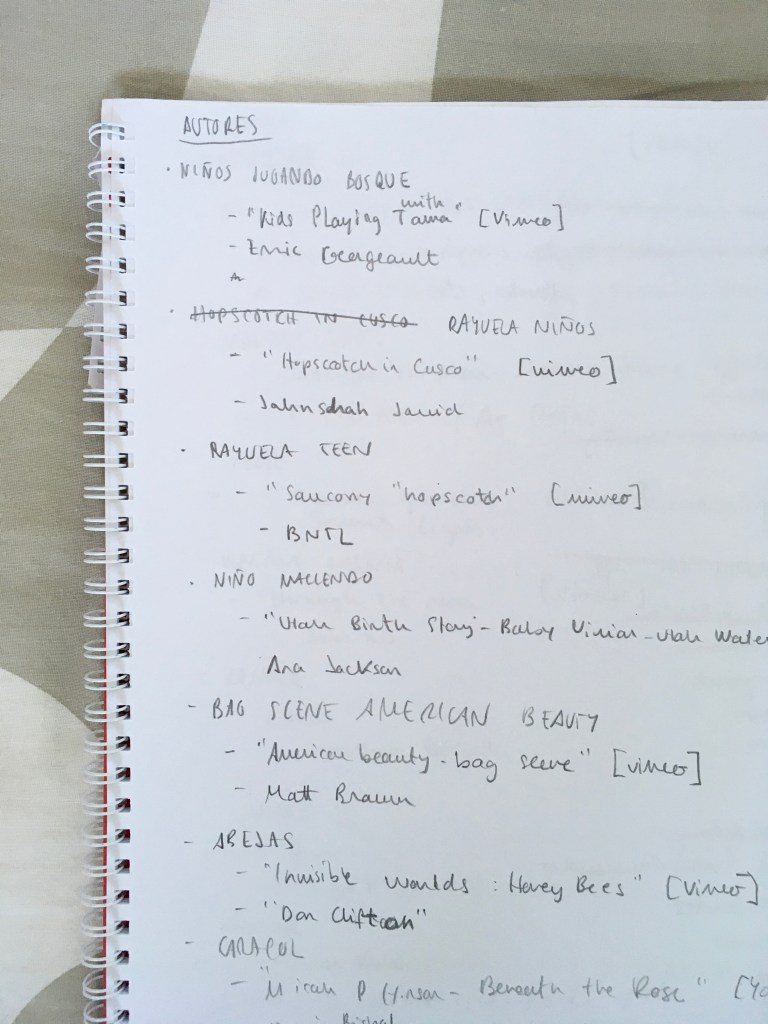 AUTORES
· NIÑOS JUGANDO BOSQUE
- "Kids Playing with Tama" [Vimeo]
- Georgeault
· HOPSCOTCH IN CUSCO RAYUELA NIÑOS
- "Hopscotch in Cusco" [vimeo]
- Jahnschah Javid
· RAYUELA TEEN
- "Saucony "hopscotch" [vimeo]
- BNTL
· NIÑO NACIENDO
- "Utah Birth Story - Baby Vivian - Utah Wate
Ana Jackson
- BAG SCENE AMERICAN BEAUTY
- "American beauty - bag scene" [vimeo]
- Matt Brown
- ABEJAS
- "Invisible Worlds: Honey Bees" [Vimeo]
- "Don Clifton"
- CARACOL
- "Micah P Hinson - Beneath the Rose" [Yo